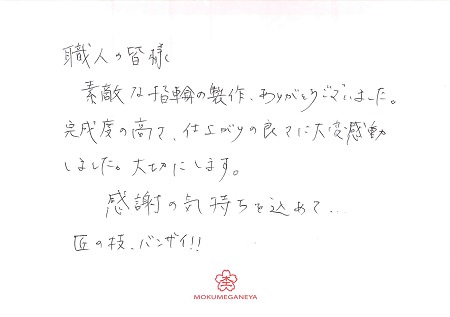 職人の皆様
素敵な指輪の製作、ありがとうございました。
完成度の高さ、仕上がりの良さに大変感動
しました。大切にします。
感謝の気持ちを込めて…
匠の技、バンザイ!!
MOKUMEGANEYA